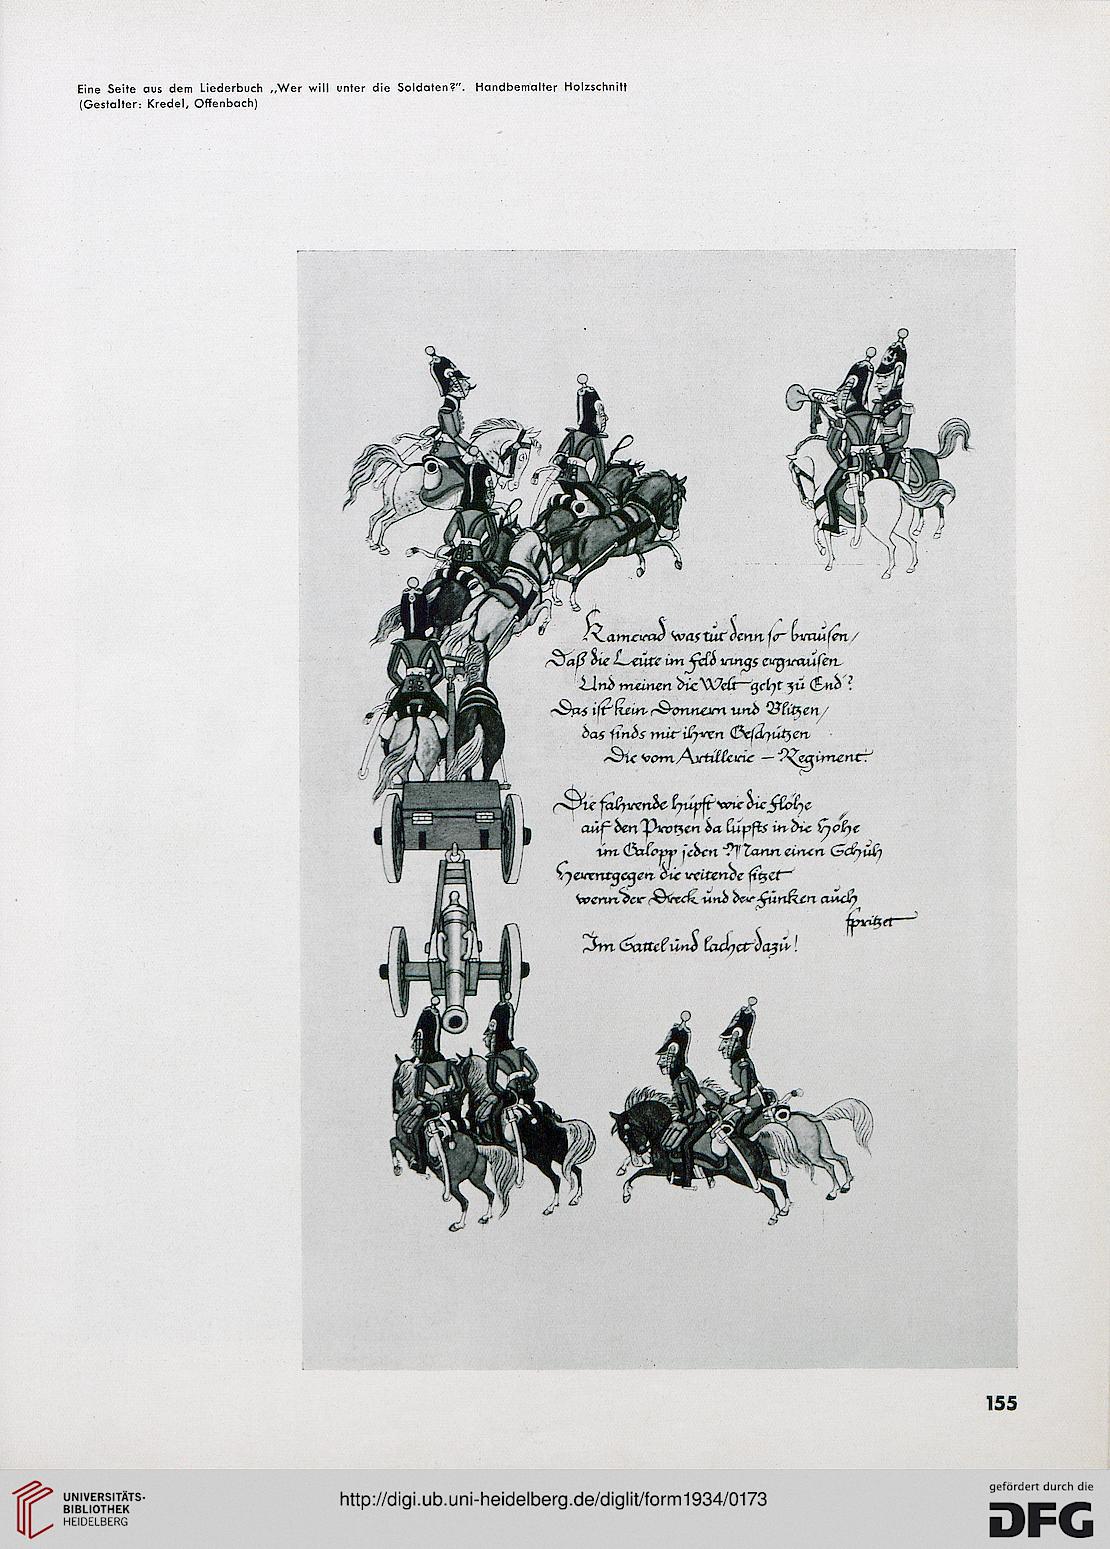 Eine Seite aus dem Liederbuch „Wer will unter die Soldaten?”. Handbemalter Holzschnitt
(Gestalter: Kredel, Offenbach)
Kamerad was tut denn so brausen/
Daß die Leute im Feld rings ergrausen
Und meinen die Welt geht zu End?
Das ist kein Donnern und Blitzen/
das sinds mit ihren Geschützen
Die vom Artillerie – Regiment.
Die fahrende hupft wie die Flöhe
auf den Protzen da lupfts in die Höhe
im Galopp jeden Mann einen Schuh
Herentgegen die reitende sitzet
wenn der Dreck und der Funken auch
spritzet
Im Sattel und lachet dazu!
155
UNIVERSITÄTS-
BIBLIOTHEK
HEIDELBERG
http://digi.ub.uni-heidelberg.de/diglit/form1934/0173
gefördert durch die
DFG